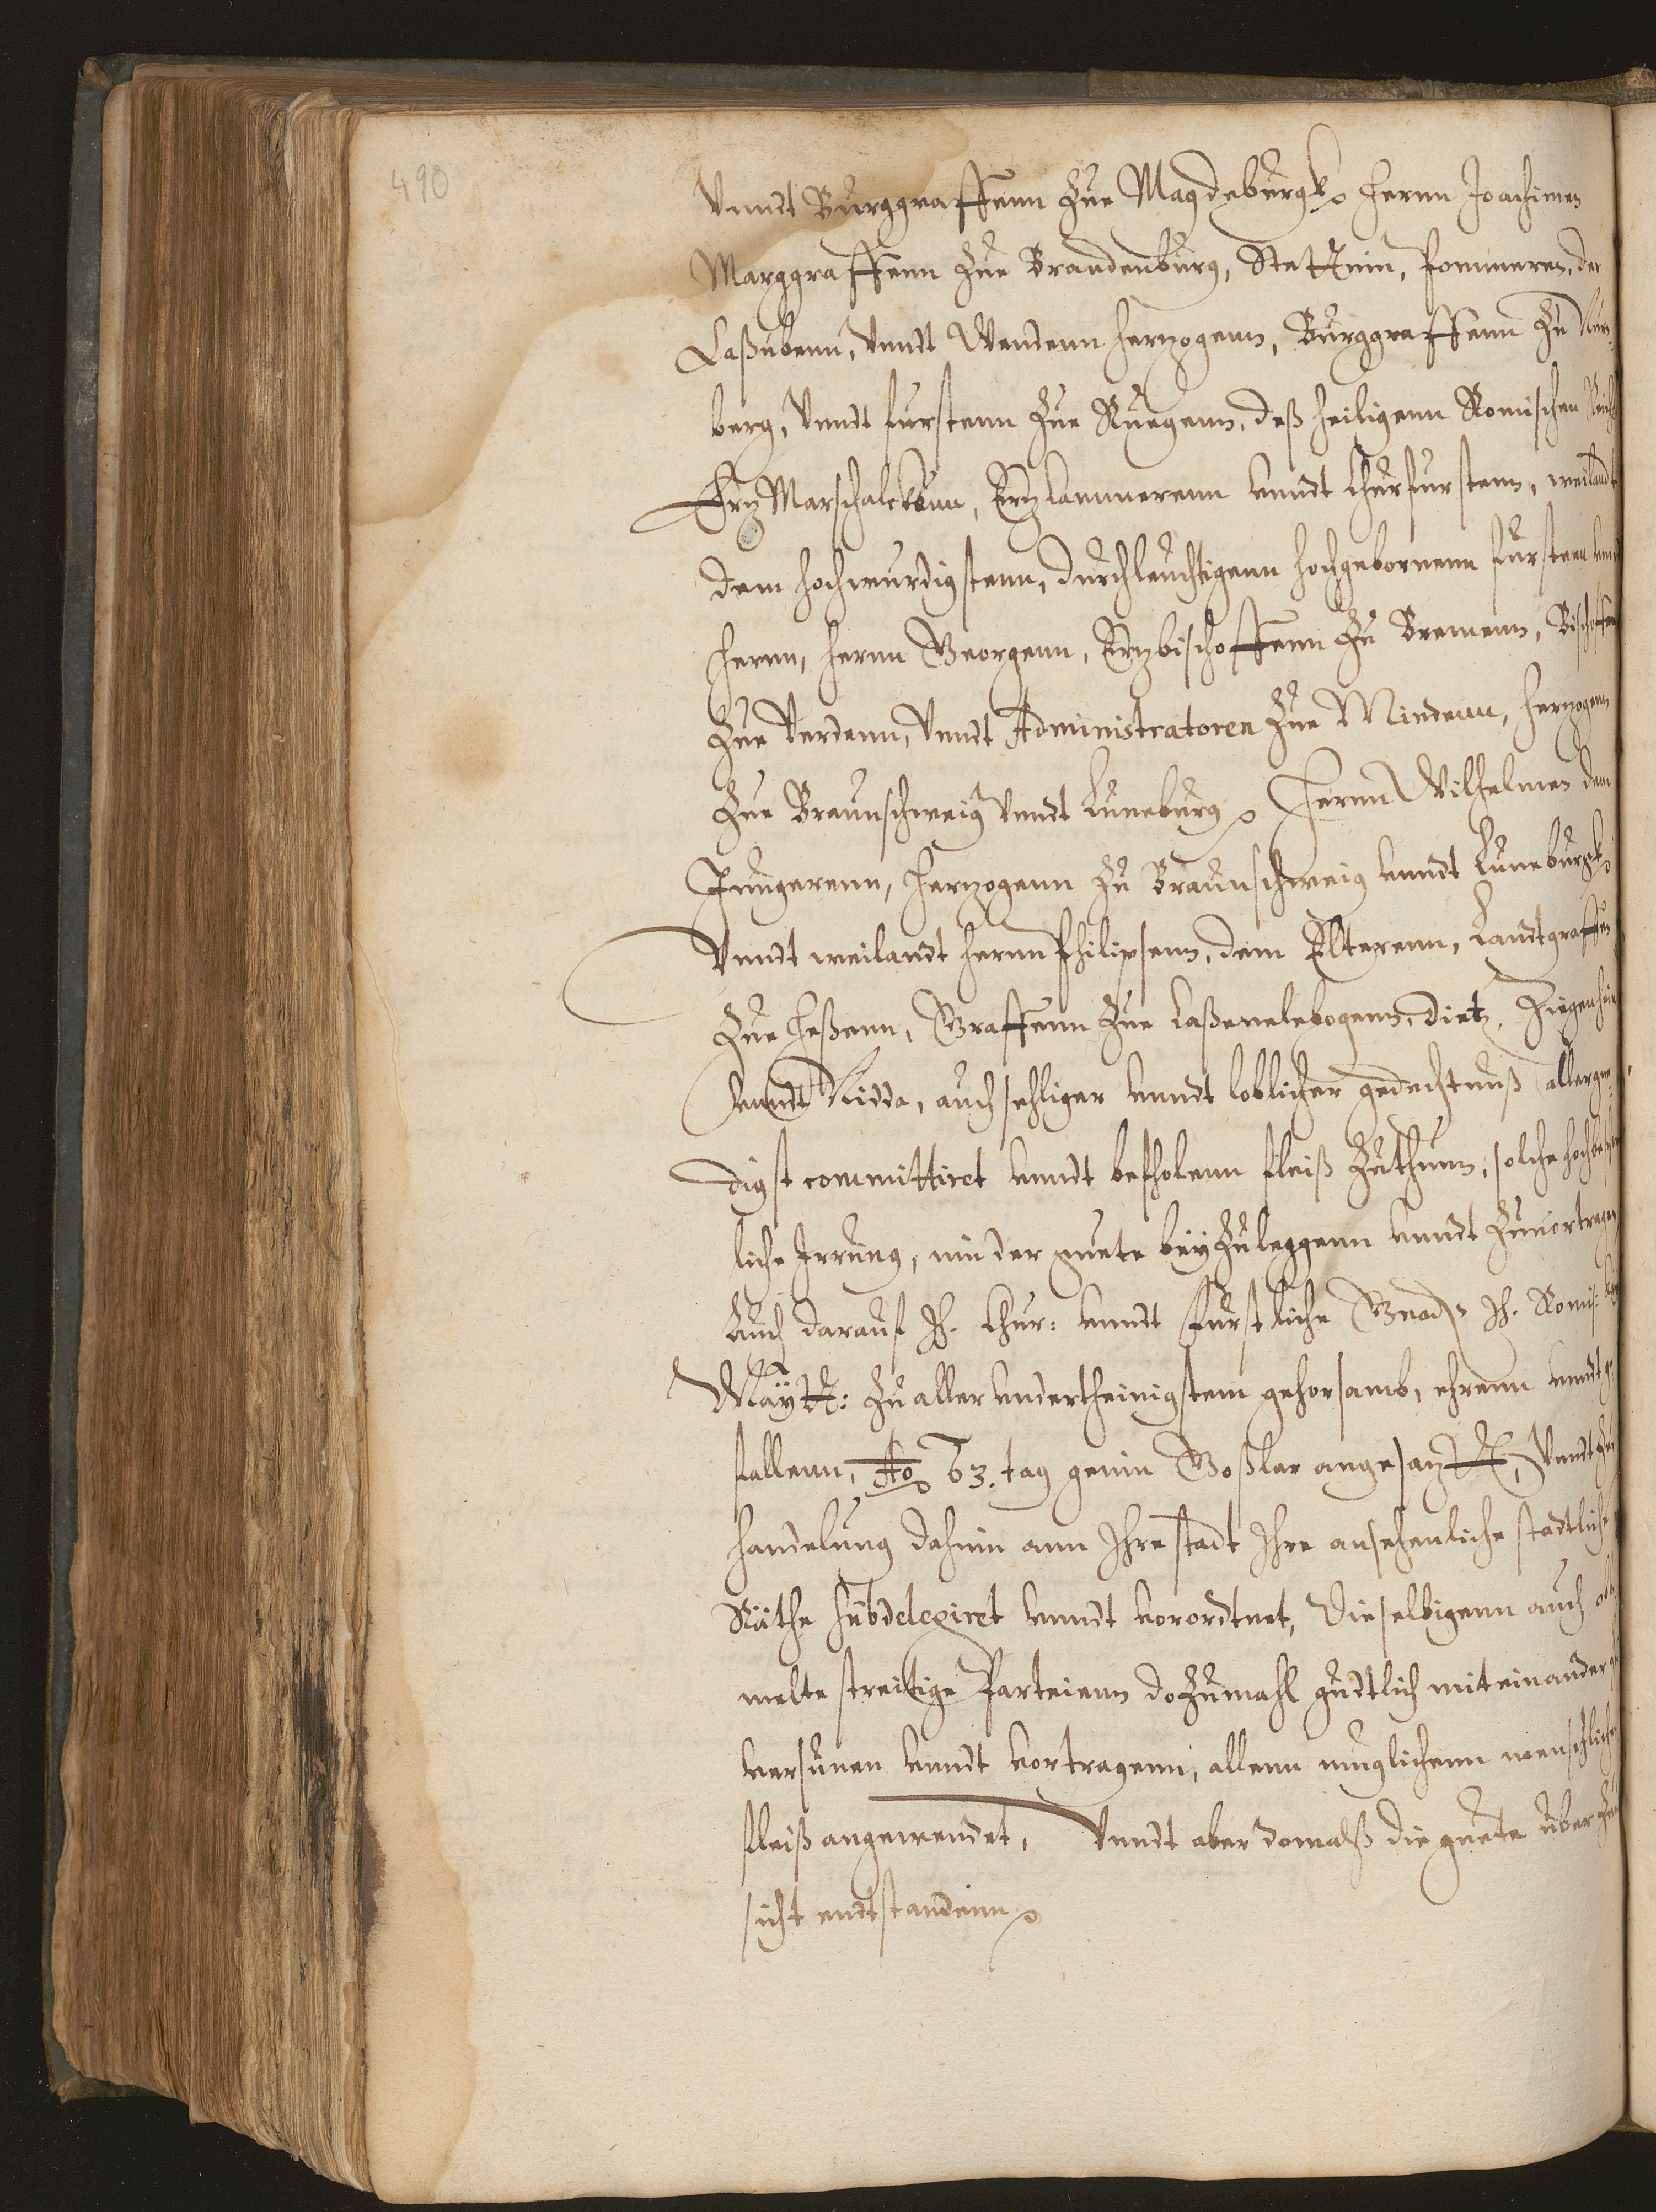 490
Vnndt Burggraffenn Zue Magdeburgk, Herrnn Joachimen
Marggraffenn Zue Brandenburg, Stettinn, Pommeren, der
Caßubenn, Vnndt Wendenn Herzogenn, Burggraffenn Zu Nurn
berg, Vnndt Furstenn Zue Ruegenn, deß Heiligenn Romischen Reichs
ErzMarschalckenn, Erzlammerenn vnndt Churfurstenn, weilandt
dem Hochwurdigstenn, Durchleuchtigenn Hochgebornenn Furstenn vnndt
Herrnn, Herrnn Georgenn, Erzbischoffenn Zu Bremenn, Bischoffen
Zue Verdenn, Vnndt Administratoren Zue Mindenn, Herzogenn
Zue Braunschweig Vnndt Luneburg, Herrnn Wilhelmen dem
Jungerenn, Herzogenn Zu Braunschweig vnndt Luneburgk,
Vnndt weilandt Herrnn Philipsenn, dem Elterenn, Landtgraffen
Zue Heßenn, Graffenn Zue Caßenelebogenn, Dietz, Ziegenhain
Vnndt Nidda, auch sehliger vnndt loblicher gedechtnuß allergne
digst committiret vnndt befholenn fleiß Zuthunn, solche
liche Irrung, inn der guete beyZuleggenn vnndt Zuuortragen
Auch darauf Ih. Chur: vnndt Furstliche Gnad: Ih. Romis:
Maytt: Zu aller vndertheinigstem gehorsamb, ehrenn vnndt ge
fallenn, Ao 63. tag genn Goßlar angesazt, Vnndt Zur
Handelung dahinn ann Ihre stadt Ihre ansehenliche stadtliche
Räthe subdelegiret vnndt vorordtnet, Dieselbigenn auch
melte streitige Parteienn doZumahl gudtlich mit einander
versunen vnndt vortragenn, allenn muglichenn menschlichen
fleiß angewendet, Vnndt aber domalß die guete vber Zu
sicht endtstandenn,